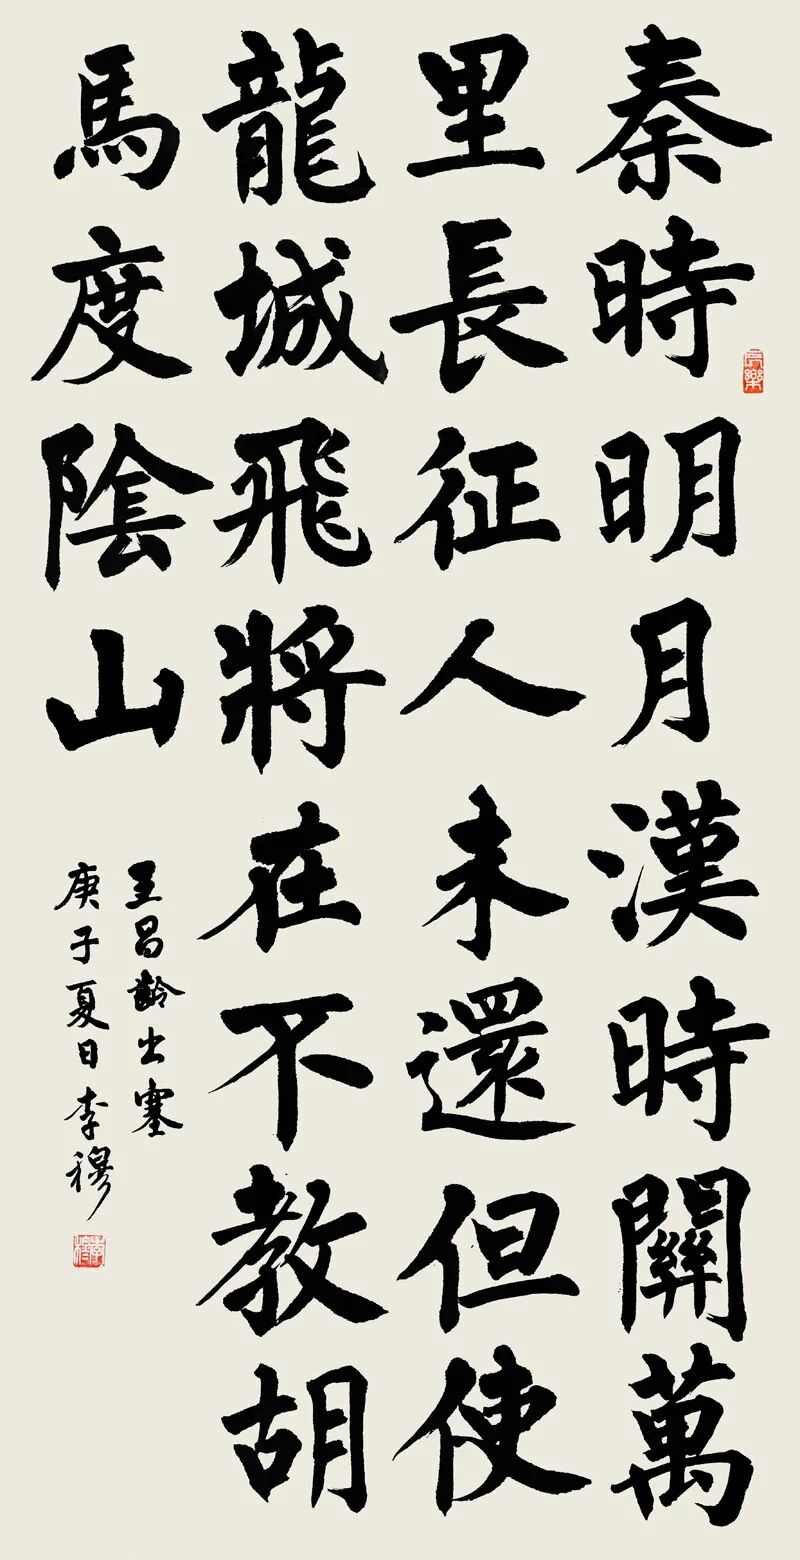 秦時明月漢時關萬
里長征人未還但使
龍城飛將在不教胡
馬度陰山
王昌齡出塞
庚子夏日李穆